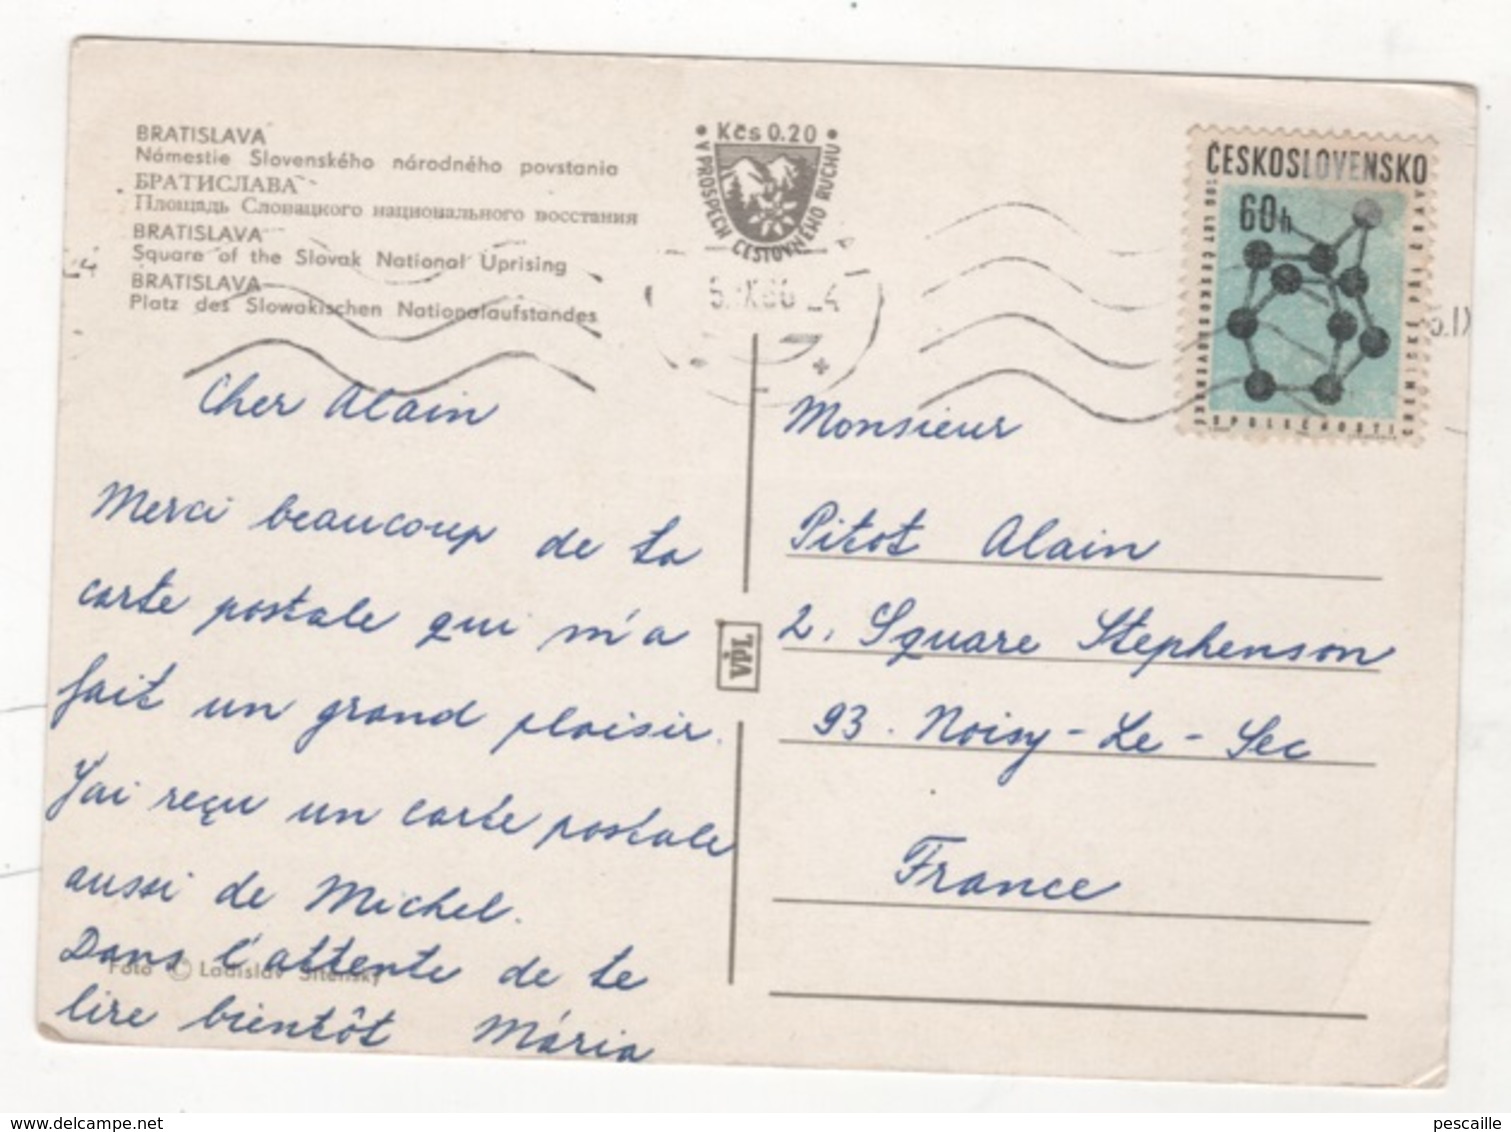 BRATISLAVA
Námestie Slovenského národného povstania
БРАТИСЛАВА
Площадь Словацкого национального восстания
BRATISLAVA
Square of the Slovak National Uprising
BRATISLAVA
Platz des Slowakischen Nationalaufstandes
• Kčs 0.20 •
V PROSPECH CESTOVNÉHO RUCHU
ČESKOSLOVENSKO
60h
100 LET ČESKOSLOVENSKÉ
SPOLEČNOSTI
CHEMICKÉ
Cher Alain
Merci beaucoup de ta
carte postale qui m'a
fait un grand plaisir.
J'ai reçu un carte postale
aussi de Michel.
Dans l'attente de te
lire bientôt Mária
Foto © Ladislav Sitenský
VPL
Monsieur
Pitot Alain
2, Square Stephenson
93. Noisy-Le-Sec
France
delcampe.net
pescaille